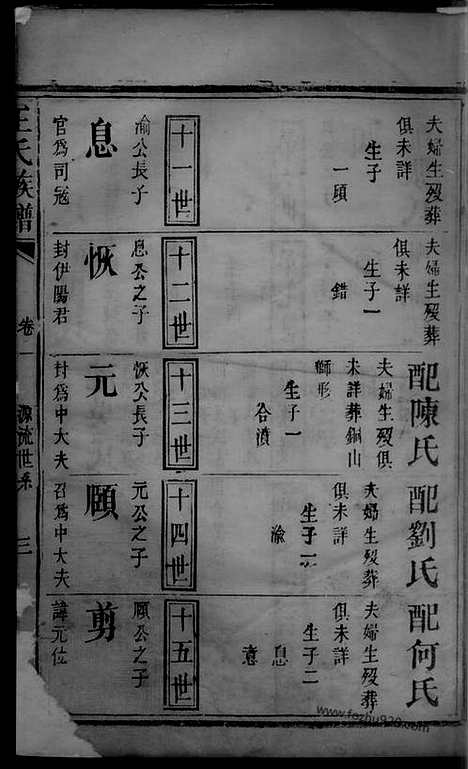 夫婦生歿葬
俱未詳
生子
一頤
十一世
渝公長子
息
官為司冦
夫婦生歿葬
俱未詳
生子一
錯
十二世
息公之子
恢
封伊陽君
配陳氏
夫婦生歿俱
未詳葬銅山
獅形
生子一
十三世
恢公長子
元
封為中大夫
配劉氏
夫婦生歿葬
俱未詳
生子一
渝
十四世
元公之子
頤
召為中大夫
配何氏
夫婦生歿葬
俱未詳
生子二
息
意
十五世
頤公之子
剪
諱元位
王氏族譜
卷一
源流世系
三
www.fozhu920.com